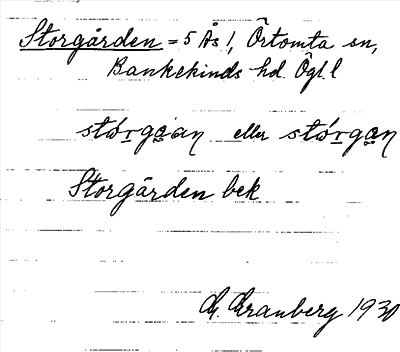 Storgården = 5 Ås!, Örtomta sn,
Bankekinds hd. Ögl. l
stórgạan eller stórgạn
Storgården bek
G. Granberg 1930